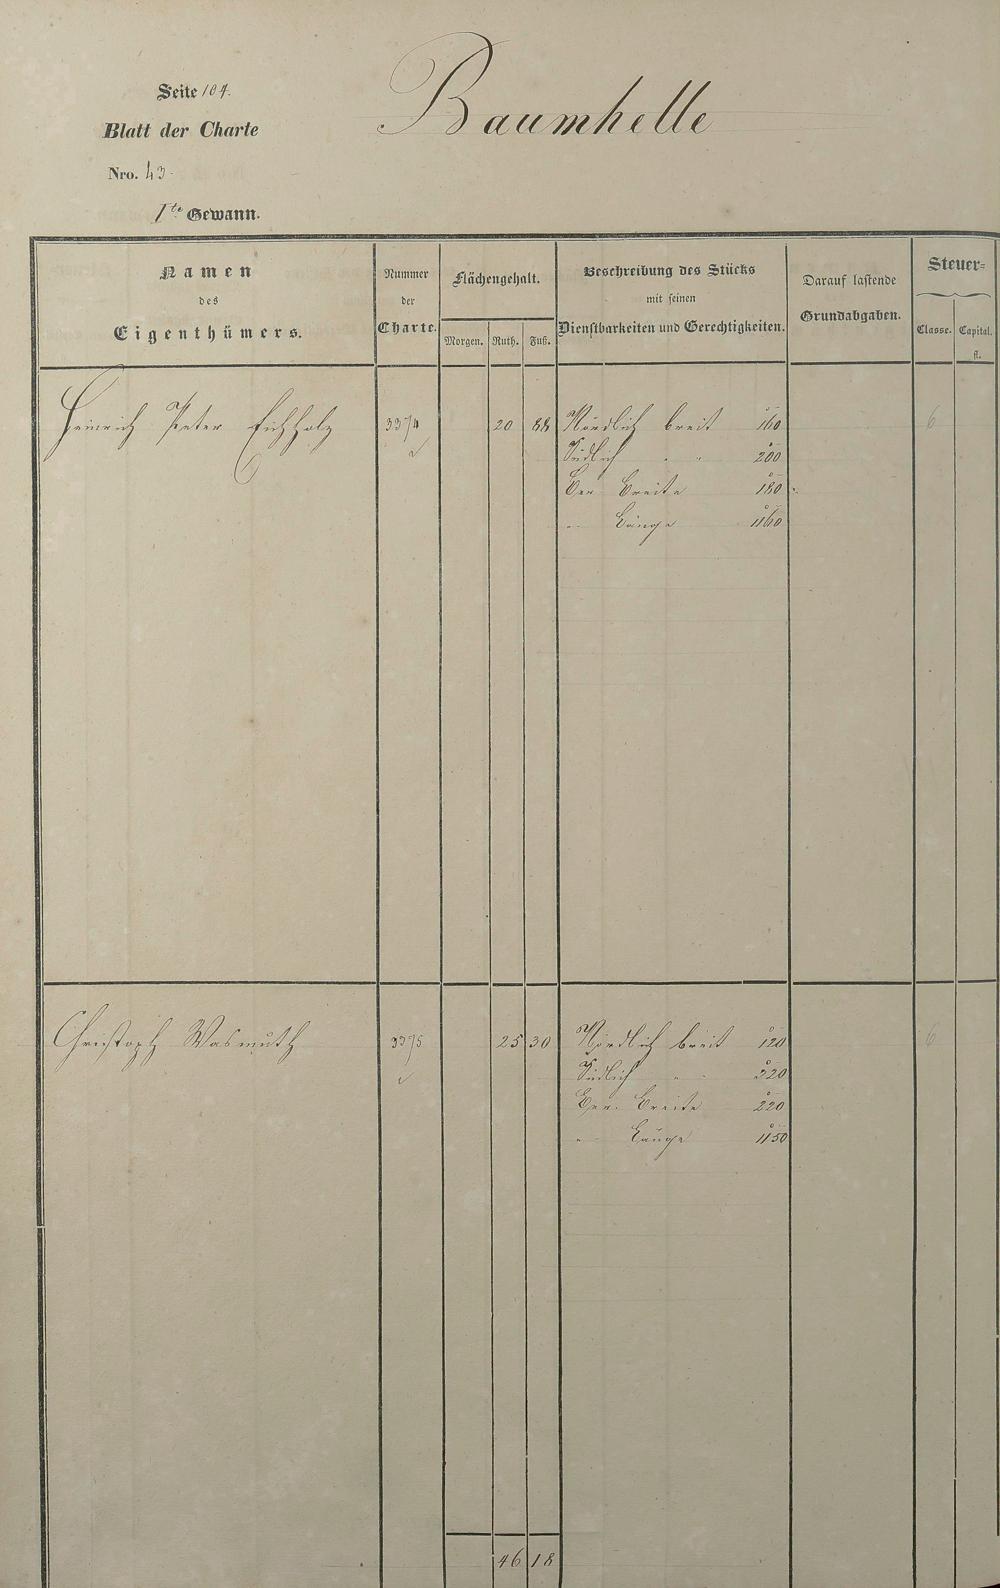 Seite 104.
Baumhelle
Blatt der Charte
Nro. 43.
1te Gewann.
Namen des Eigenthümers.
Nummer der Charte.
Flächengehalt.
Morgen. Ruth. Fuß.
Beschreibung des Stücks mit seinen Dienstbarkeiten und Gerechtigkeiten.
Darauf lastende Grundabgaben.
Steuer-
Classe. Capital. fl.
Heinrich Peter Eichholz 3374 20 88 Nördlich breit 160 6
Südlich " " 200
Ber. Breite 180
" Länge 1160
Christoph Wasmuth 3375 25 30 Nördlich breit 120 6
Südlich " " 320
Ber. Breite 220
" Länge 1150
46 18